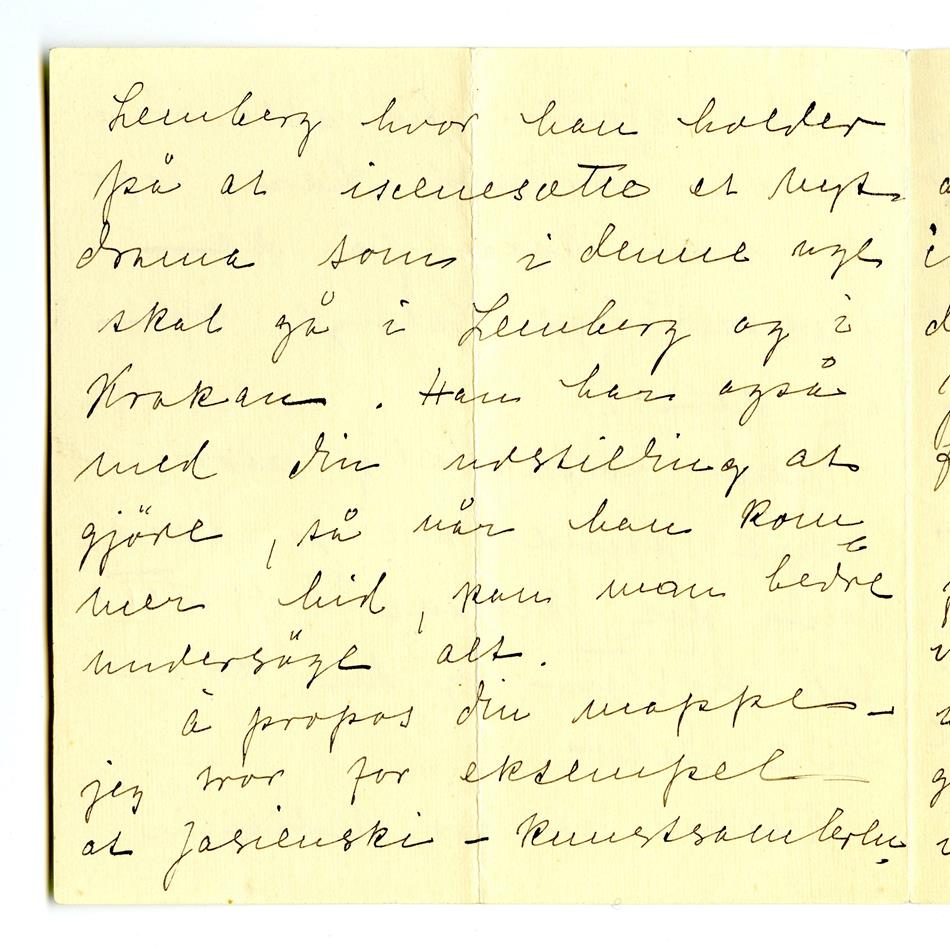 Lemberg hvor han holder
på at iscenesætte et nyt
drama som i denne uge
skal gå i Lemberg og i
Krakau. Han har også
med din udstilling at
gjöre, så når han kom
mer hid, kan man bedre
undersöge alt.
à propos din mappe –
jeg tror for eksempel –
at Jasienski – kunstsamleren